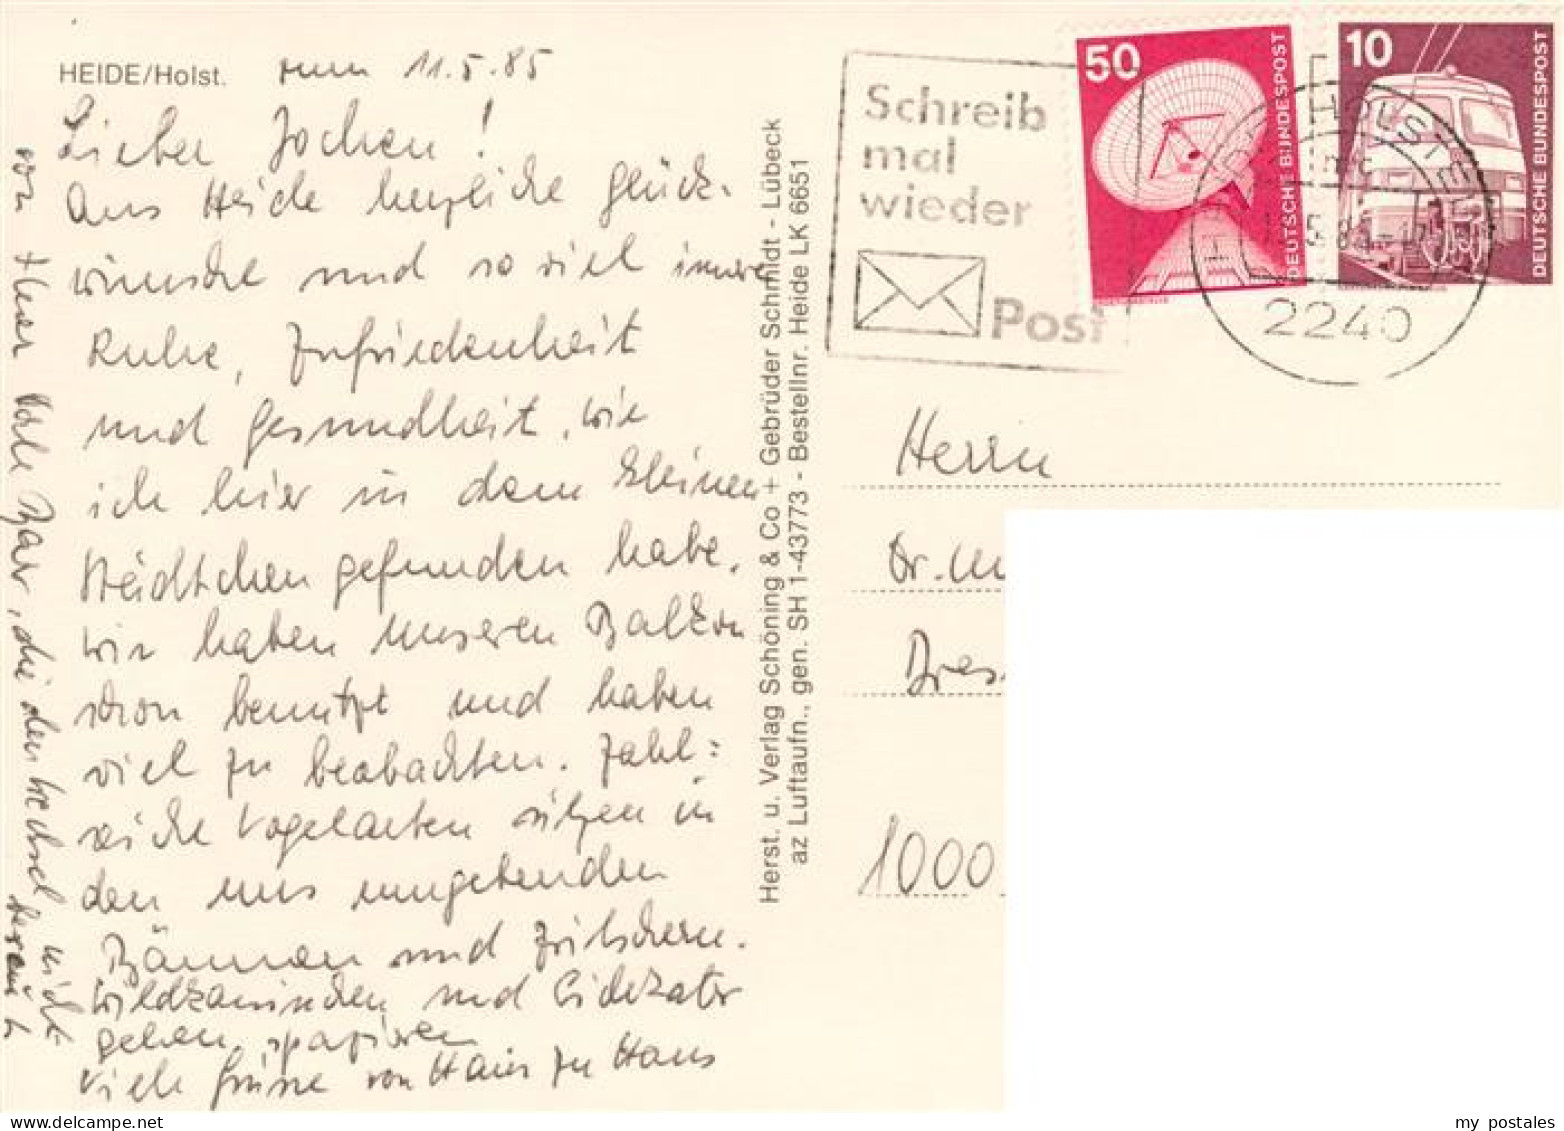 HEIDE/Holst. zum 11.5.85
Lieber Jochen!
Aus Heide herzliche Glück-
wünsche und so viel innere
Ruhe, Zufriedenheit
und Gesundheit, wie
ich hier in dem kleinen
Städtchen gefunden habe.
Wir haben unseren Balkon
schon benutzt und haben
viel zu beobachten. Zahl=
reiche Vogelarten sitzen in
den uns umgebenden
Bäumen und zwitschern.
Wildkaninchen und
gehen spazieren
Viele Grüsse von Haus zu Haus
von
die den Wechsel nicht
Herst. u. Verlag Schöning & Co + Gebrüder Schmidt - Lübeck
az Luftaufn., gen. SH 1-43773 - Bestellnr. Heide LK 6651
Schreib
mal
wieder
Post
50
DEUTSCHE BUNDESPOST
10
DEUTSCHE BUNDESPOST
HOLSTEIN
2240
Herrn
Dr.
Dres
1000
my postales